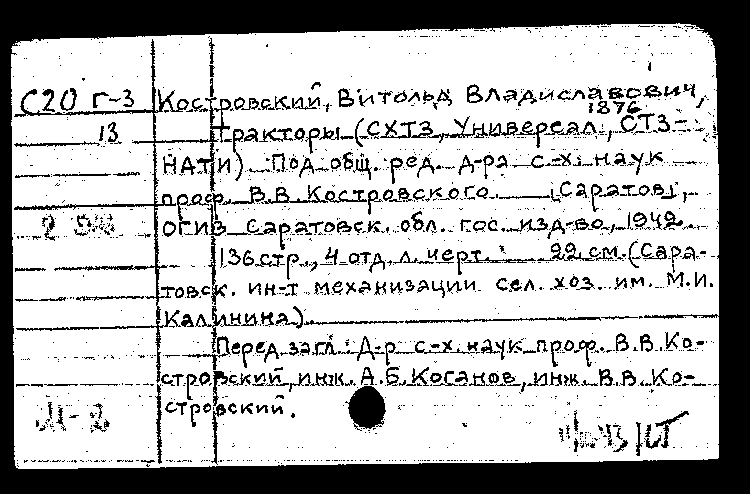 С20 Г-3 Костровский, Витольд Владиславович,
1876
13 Тракторы (СХТЗ, Универсал, СТЗ-
НАТИ). Под общ. ред. д-ра с-х. наук
проф. В.В. Костровского. [Саратов],
2 ОГИЗ Саратовск. обл. гос. изд-во, 1942.
136 стр., 4 отд. л. черт. 22 см. (Сара-
товск. ин-т механизации сел. хоз. им. М.И.
Калинина).
Перед загл.: Д-р с-х. наук проф. В.В. Ко-
стровский, инж. А.Б. Коганов, инж. В.В. Ко-
стровский.
М-2